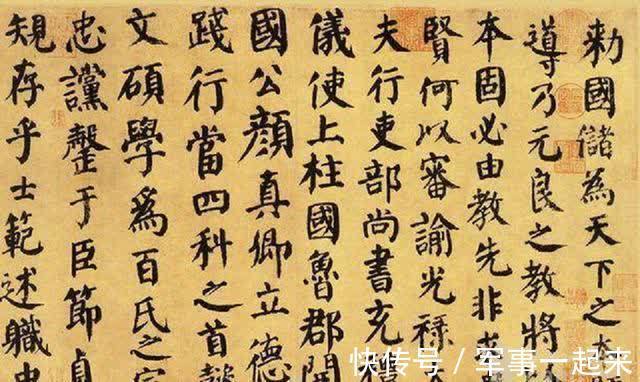 勑國儲為天下之
導乃元良之教將
本固必由教先非
賢何以審諭光祿
夫行吏部尚書充
儀使上柱國魯郡開
國公顏真卿立德
踐行當四科之首懿
文碩學爲百氏之宗
忠讜罄于臣節貞
規存乎士範述職中
快传号 / 军事一起来